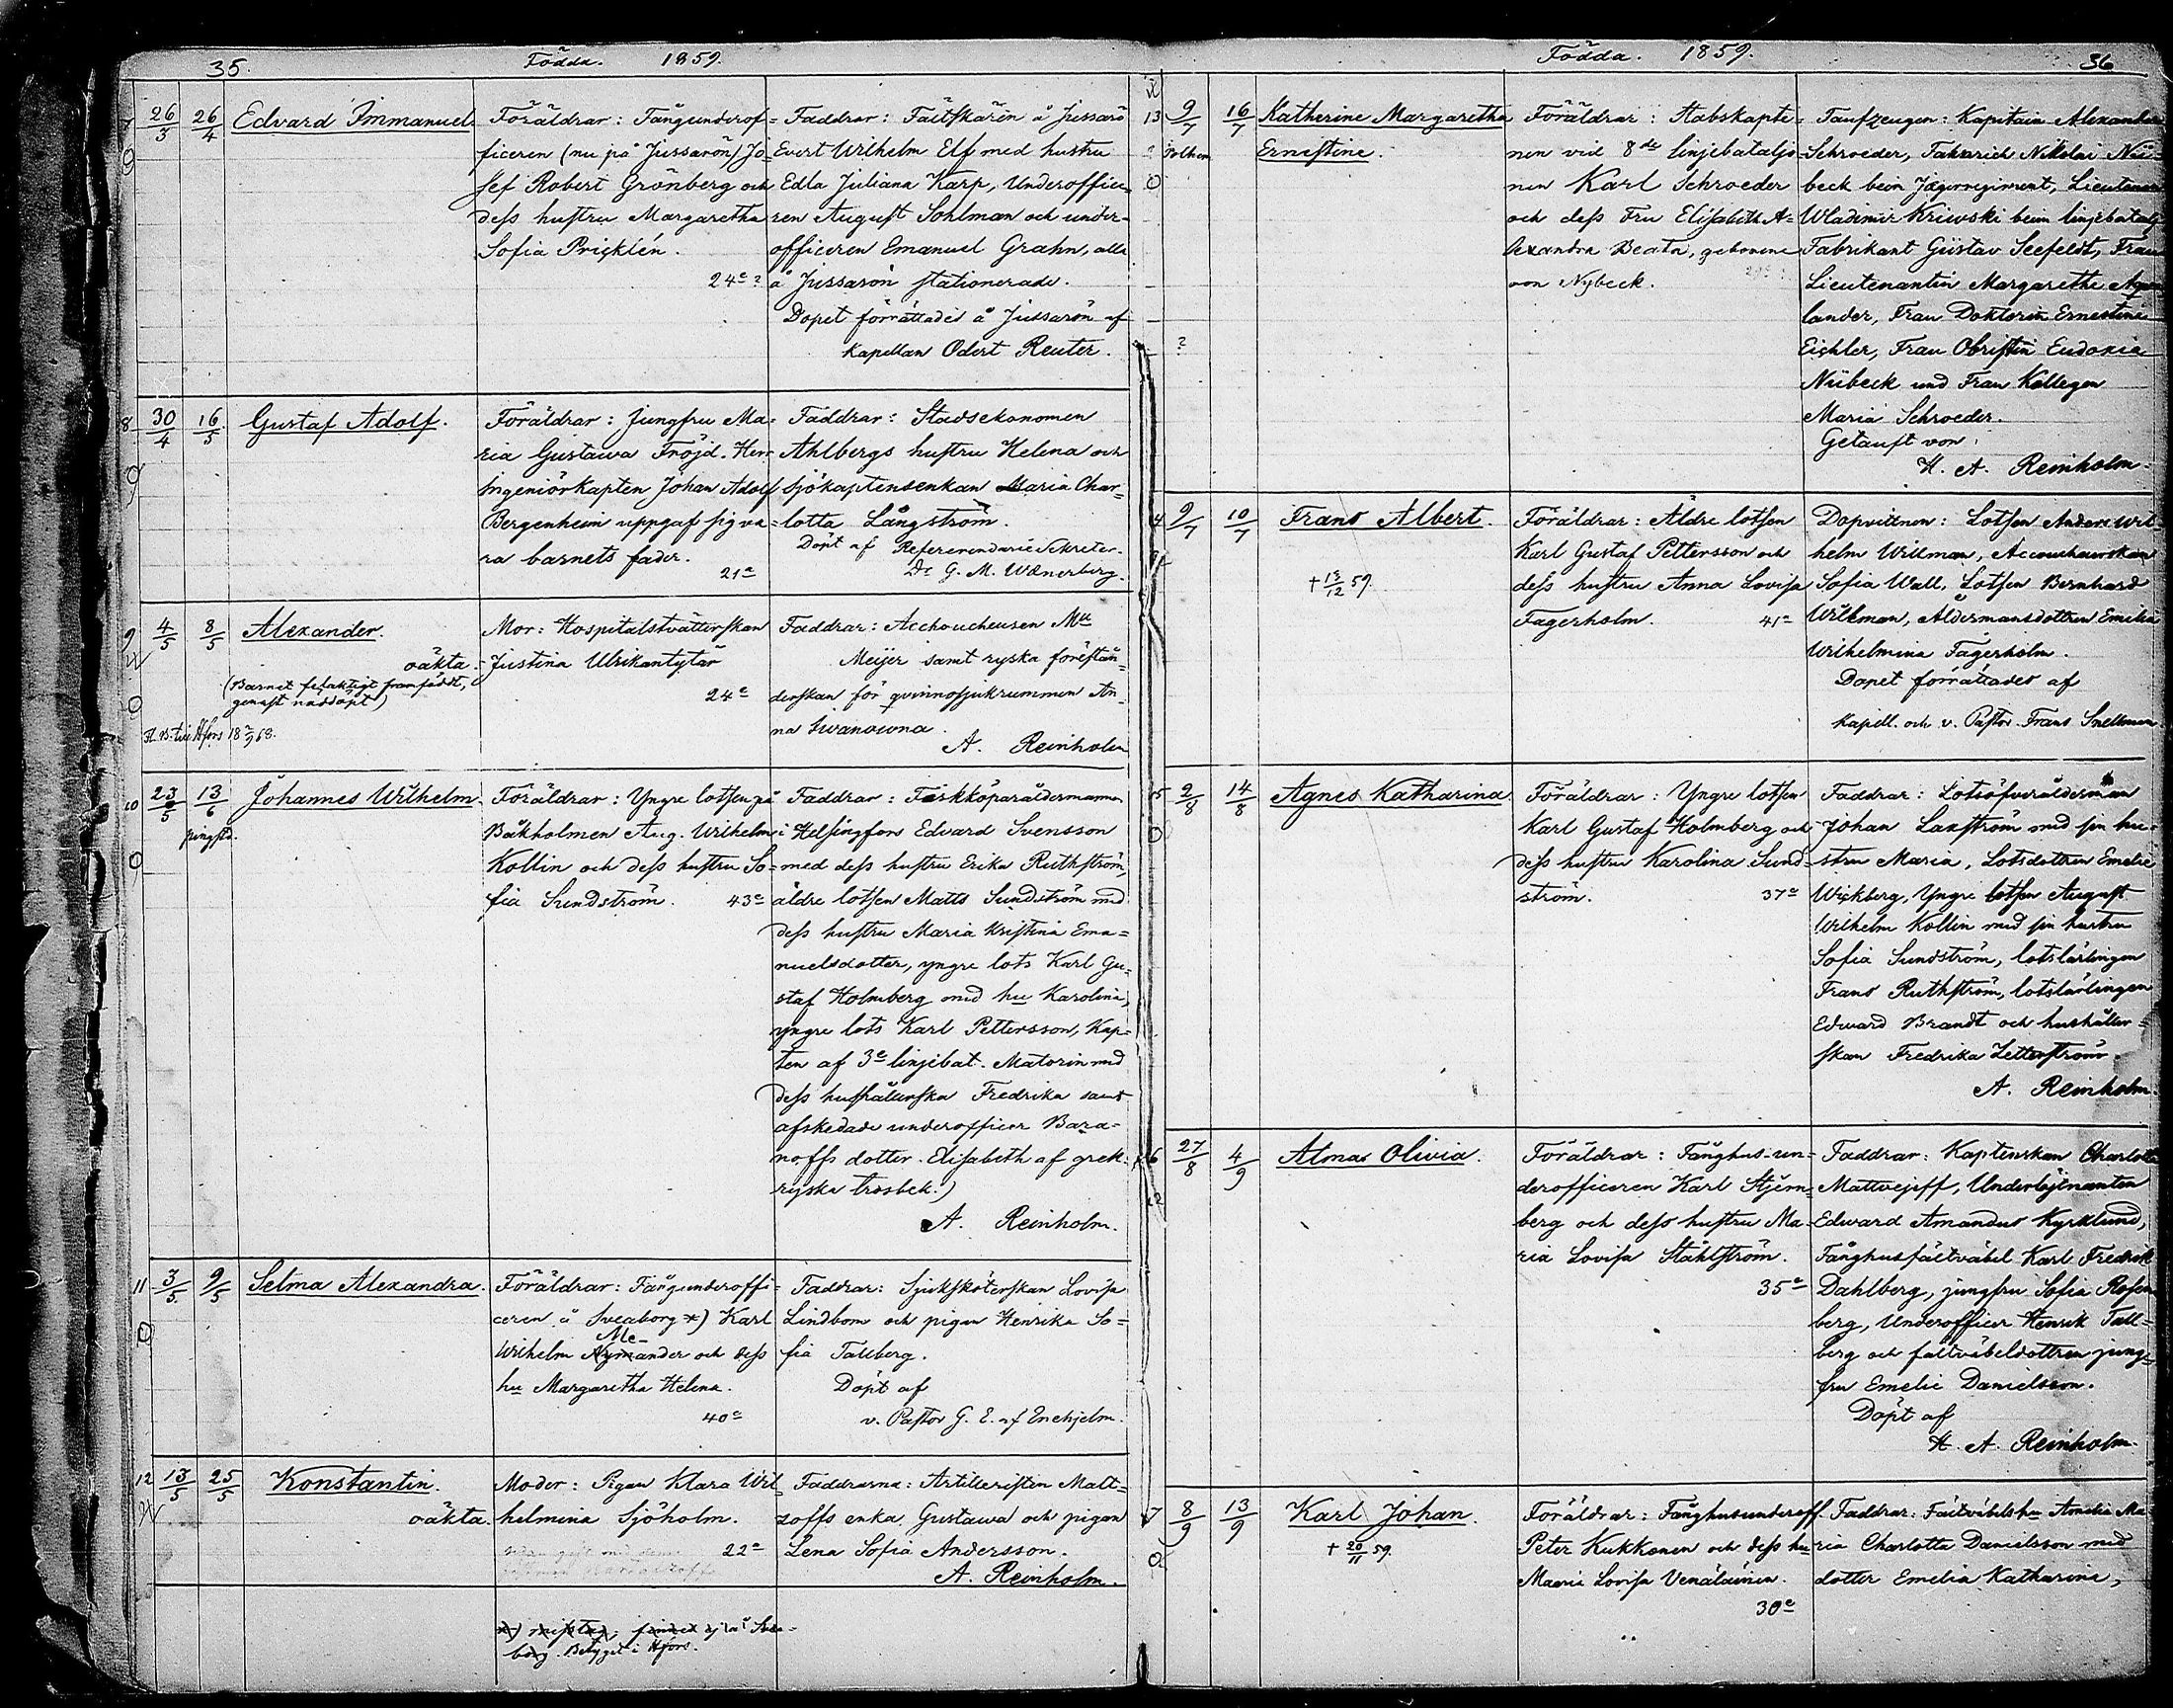 35.
Födda. 1859.
7
26/3
26/4
Edvard Immanuel
Föräldrar: Fångunderof-
ficeren (nu på Jussarön) Jo-
sef Robert Grönberg och
dess hustru Margaretha
Sofia Pricklén.
24e?
Faddrar: Fältskären å Jussarö
Evert Wilhelm Elf med hustru
Edla Juliana Karp, Underoffice-
ren August Sohlman och under-
officeren Emanuel Grahn, alla
å Jussarön stationerade.
Dopet förrättades å Jussarön af
Kapellan Odert Reuter.
8
30/4
16/5
Gustaf Adolf.
Föräldrar: Jungfru Ma-
ria Gustava Fröjd. Herr
Ingeniörkapten Johan Adolf
Bergenheim uppgaf sig va-
ra barnets fader.
21e
Faddrar: Stadsekonomen
Ahlbergs hustru Helena och
Sjökaptensenkan Maria Char-
lotta Långström.
Döpt af Referendarie Sekreter.
Dr G. M. Wænerberg.
9
4/5
8/5
Alexander.
oäkta.
(Barnet felaktigt framfödt,
genast nöddöpt)
Fl. B. till Hfors 18 2/9 68.
Mor: Hospitalstvätterskan
Justina Ulrikantytär
24e
Faddrar: Acchoucheusen Mll
Meijer samt ryska förestån-
derskan för qvinnosjukrummen An-
na Iwanowna.
A. Reinholm
10
23/5
13/6
pingstd.
Johannes Wilhelm.
Föräldrar: Yngre lotsen på
Båkholmen Aug. Wilhelm
Kollin och dess hustru So-
fia Sundström. 43e
Faddrar: Fiskköparåldermannen
i Helsingfors Edvard Svensson
med dess hustru Erika Ruthström,
äldre lotsen Matts Sundström med
dess hustru Maria Kristina Ema-
nuelsdotter, yngre lots Karl Gu-
staf Holmberg med hu Karolina,
yngre lots Karl Pettersson, Kap-
ten af 3e linjebat. Matorin med
dess hushållerska Fredrika samt
afskedade underofficer Bara-
noffs dotter Elisabeth af grek.
ryska trosbek.)
A. Reinholm.
11
3/5.
9/5
Selma Alexandra.
Föräldrar: Fångunderoffi-
ceren å Sveaborg *) Karl
Me-
Wilhelm Nymander och dess
hu Margaretha Helena.
40e
Faddrar: Sjukskö­terskan Lovisa
Lindbom och pigan Henrika So-
fia Tallberg.
Döpt af
v. Pastor G. E. af Enehjelm.
12
13/5
25/5
Konstantin.
oäkta.
Moder: Pigan Klara Wil-
helmina Sjöholm.
22e
Faddrarna: Artilleristen Malt-
zoffs enka Gustawa och pigan
Lena Sofia Andersson.
A. Reinholm.
*) misstag; finnes ej å Svea-
borg. Betyget i Hfors.
Födda. 1859.
36
13
9/7
16/7
Katherine Margaretha
Ernestine.
Föräldrar: Stabskapte-
nen vid 8de linjebataljo-
nen Karl Schroeder
och dess Fru Elisabeth A-
lexandra Beata, geborene
von Nybeck.
Taufzeugen: Kapitain Alexander
Schroeder, Fähnrich Nikolai Nü-
beck beim Jägerregiment, Lieutenant
Wladimir Kriwski beim linjebatalj
Fabrikant Gustav Seefeldt, Frau
Lieutenantin Margarethe
lander, Frau Doktorin Ernestine
Eichler, Frau Obristin Eudoxia
Nübeck und Frau Kollegen
Maria Schroeder.
Getauft von:
H. A. Reinholm.
14
9/7
10/7
Frans Albert.
† 18/12 59.
Föräldrar: Äldre lotsen
Karl Gustaf Pettersson och
dess hustru Anna Lovisa
Fagerholm. 41e
Dopvittnen: Lotsen Anders Wil-
helm Willman, Accoucheuskan
Sofia Wall, Lotsen Bernhard
Willman, Åldermansdottren Emelia
Wilhelmina Fagerholm.
Dopet förrättades af
Kapell. och v. Pastor Frans Snellman
15
2/8
14/8
Agnes Katharina.
Föräldrar: Yngre lotsen
Karl Gustaf Holmberg och
dess hustru Karolina Sund-
ström. 37e
Faddrar: Lotsöfverålderman
Johan Laxström med sin hu-
stru Maria, Lotsdottren Emelie
Wickberg, Yngre lotsen August
Wilhelm Kollin med sin hustru
Sofia Sundström, lotslärlingen
Frans Ruthström, lotslärlingen
Edward Brandt och hushåller-
skan Fredrika Zetterström.
A. Reinholm.
16
27/8
4/9
Alma Olivia.
Föräldrar: Fånghus-un-
derofficeren Karl Stjern-
berg och dess hustru Ma-
ria Lovisa Ståhlström.
35e
Faddrar: Kaptenskan Charlotta
Mattvejeff, Underlöjtnanten
Edward Amandus Kyrklund,
Fånghusfältväbel Karl Fredrik
Dahlberg, jungfru Sofia Rosen-
berg, Underofficer Henrik Tall-
berg och fältväbeldottren jung-
fru Emelie Danielsson.
Döpt af
H. A. Reinholm.
17
8/9
13/9
Karl Johan.
† 20/11 59.
Föräldrar: Fånghusunderoff.
Peter Kukkonen och dess hu
Maria Lovisa Venäläinen.
30e
Faddrar: Fältväbels hu Amalia Ma-
ria Charlotta Danielsson med
dotter Emelia Katharina,